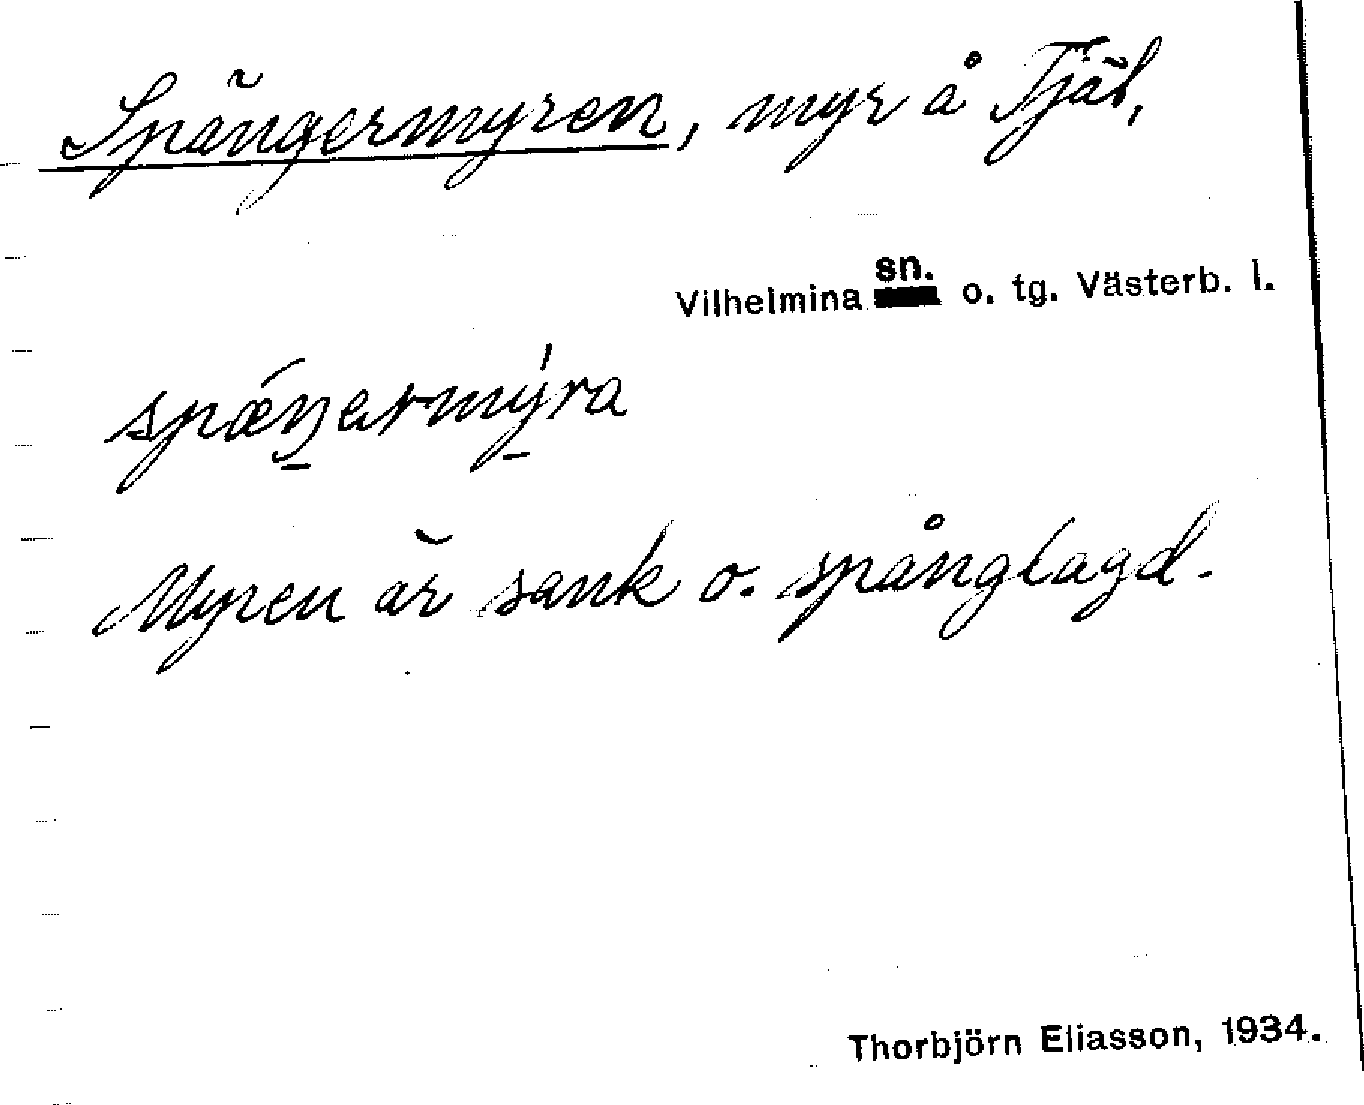 Spängermyren, myr å Tjäl,
Vilhelmina sn. o. tg. Västerb. l.
spǽŋermýra
Myren är sank o. spånglagd.
Thorbjörn Eliasson, 1934.